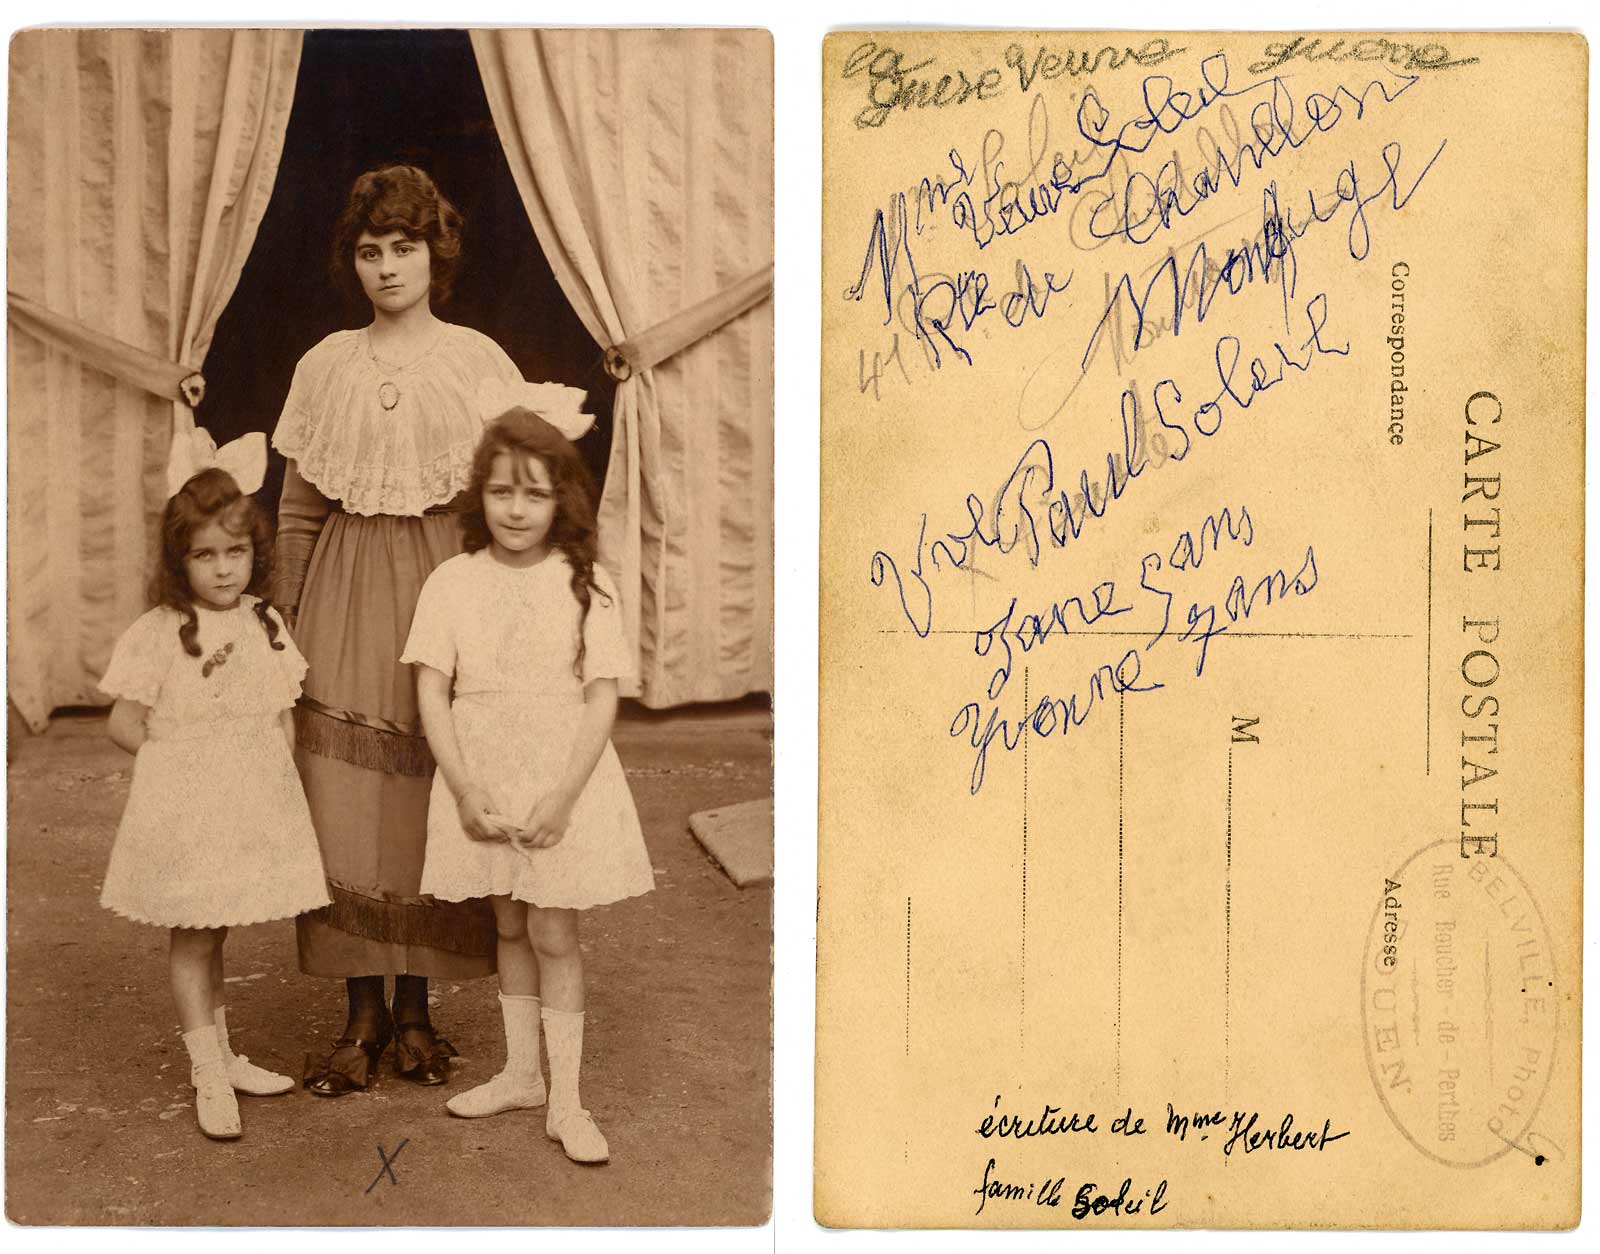 X
la
mere Veuve guerre
Mme Veuve Soleil
41 Rte de Chatillon
Montrouge
Vve Paul Soleil
Jane 5 ans
Yvonne 7 ans
Correspondance
CARTE POSTALE
M
Adresse
BELVILLE, Photo
Rue Boucher-de-Perthes
ROUEN
écriture de Mme Herbert
famille Soleil